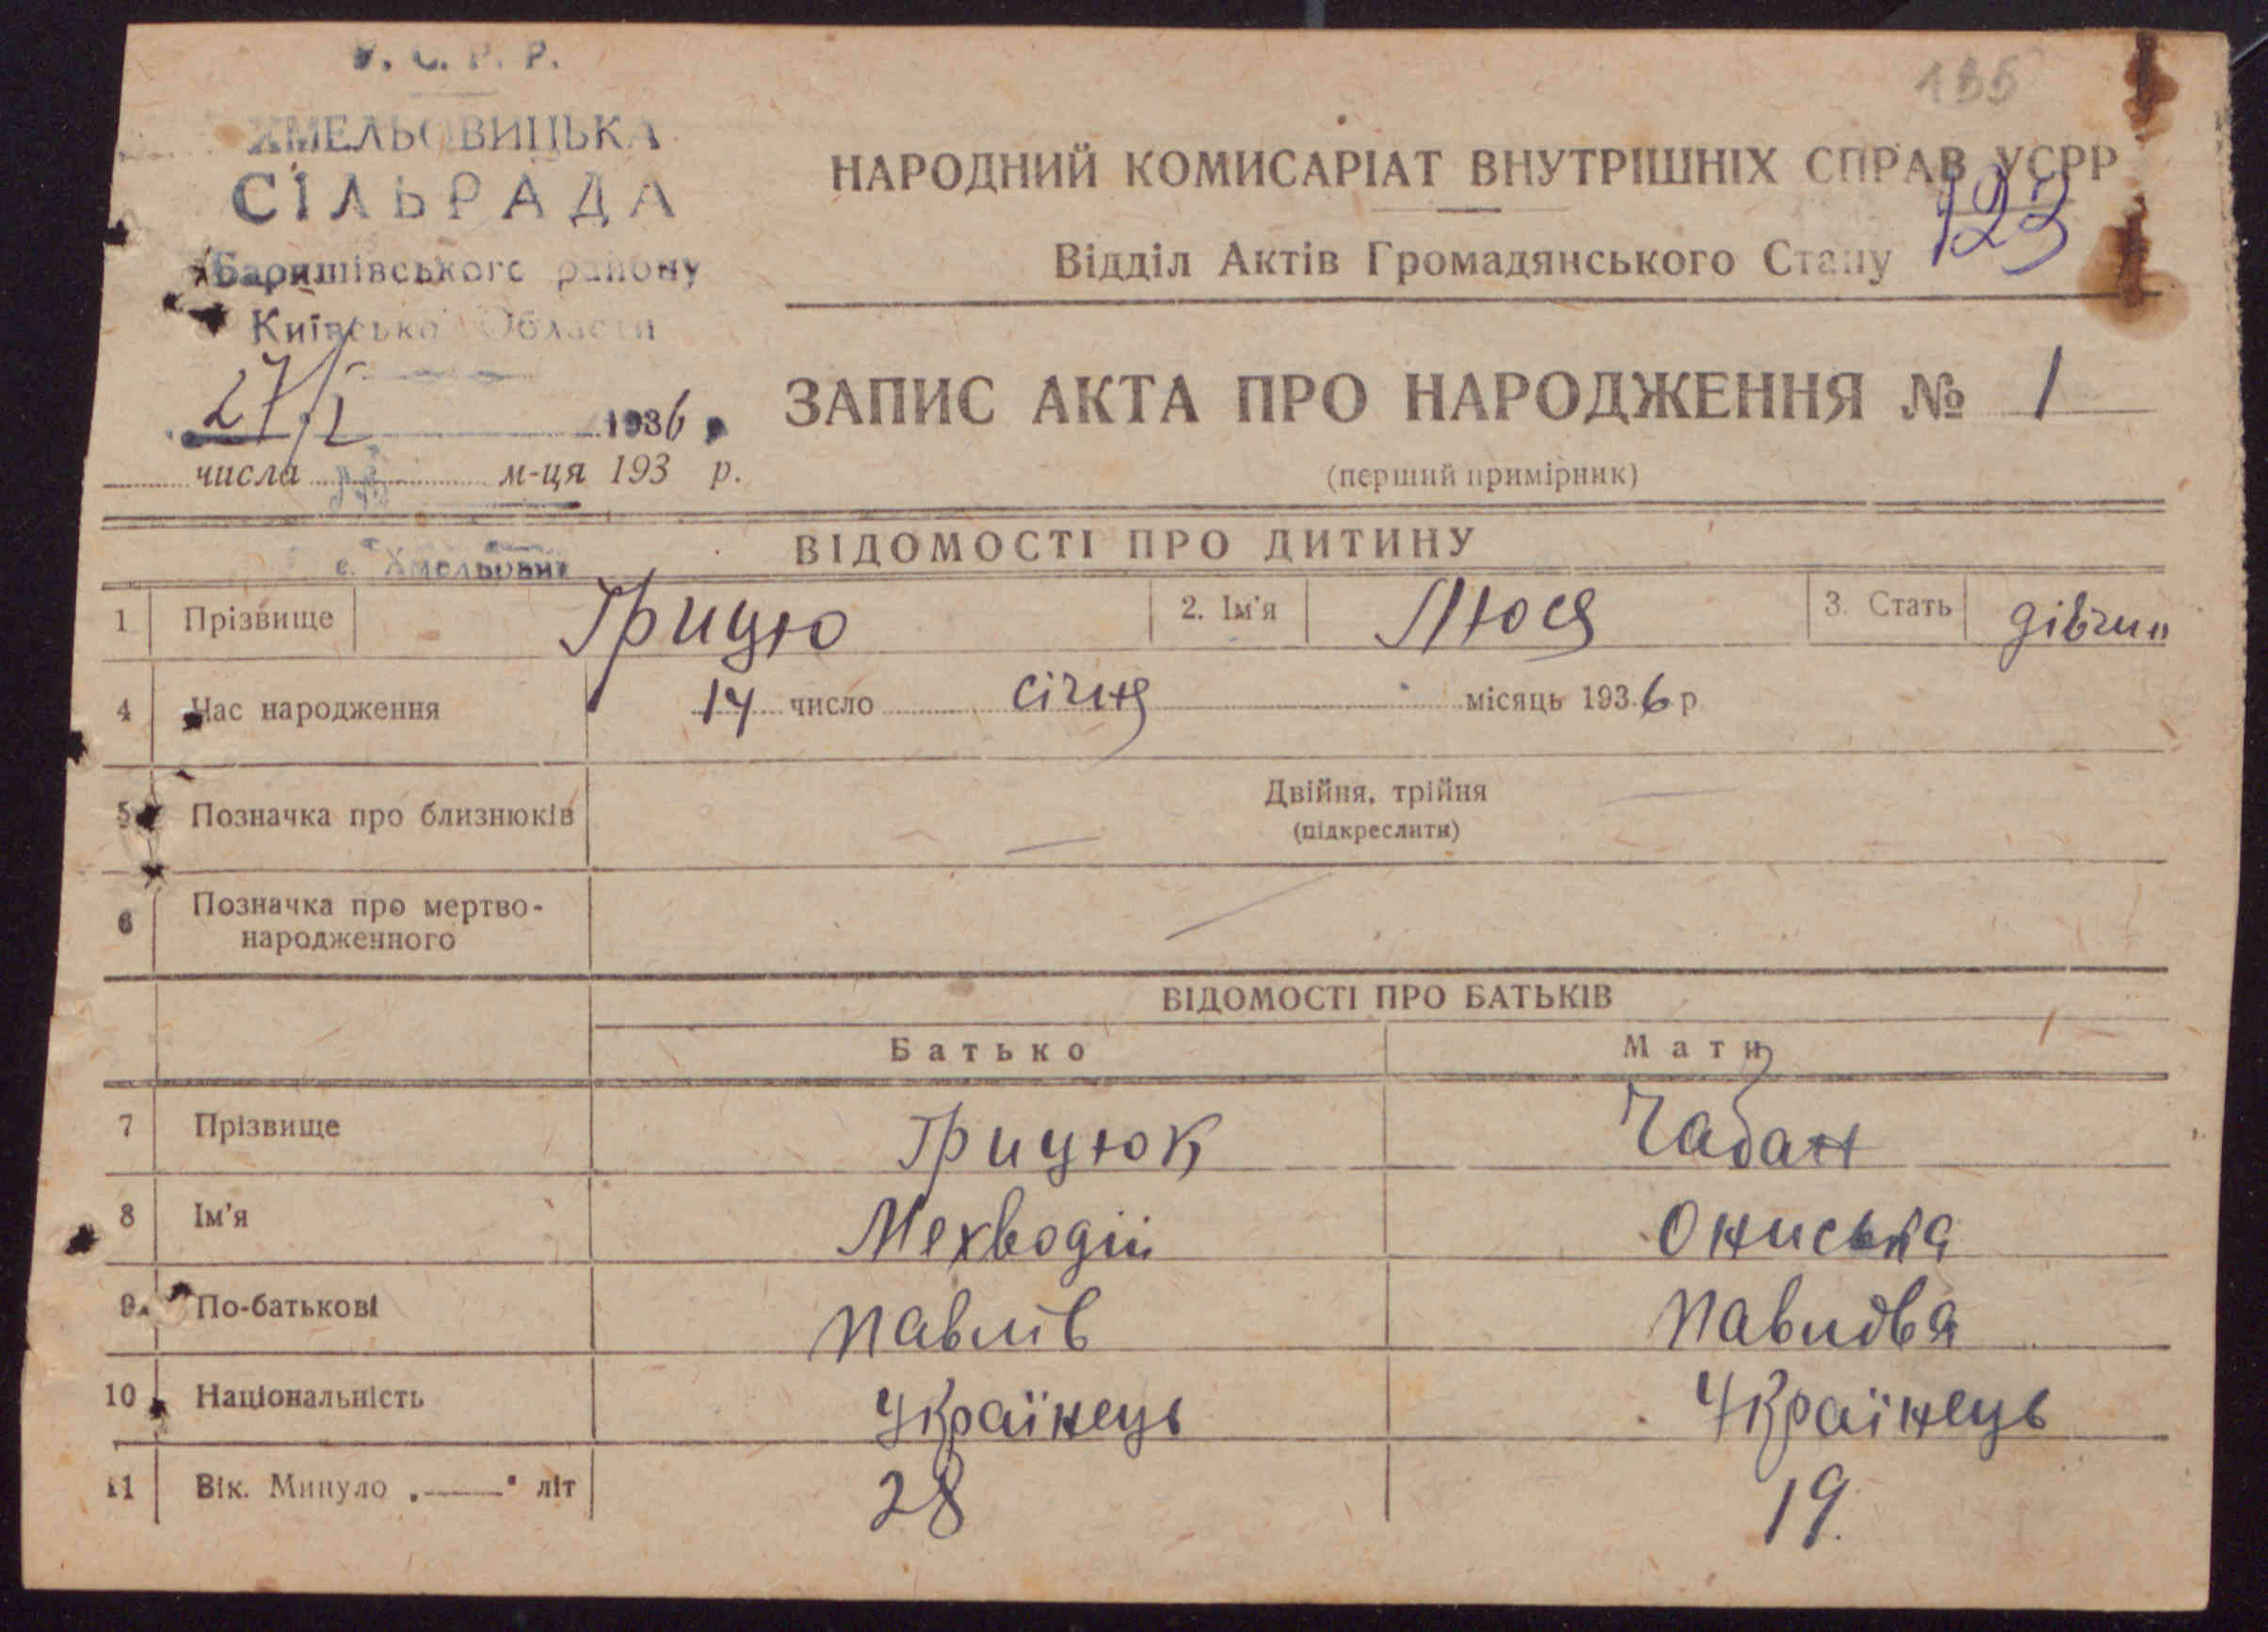 У. С. Р. Р.
ХМЕЛЬОВИЦЬКА
СІЛЬРАДА
Баришівського району
Київсько Области
27/I 1936
числа м-ця 193 р.
с. Хмельови
135
НАРОДНИЙ КОМИСАРІАТ ВНУТРІШНІХ СПРАВ УСРР
123
Відділ Актів Громадянського Стану
ЗАПИС АКТА ПРО НАРОДЖЕННЯ № 1
(перший примірник)
ВІДОМОСТІ ПРО ДИТИНУ
1 Прізвище Грицю 2. Ім'я Люся 3. Стать дівчин
4 Час народження 14 число січня місяць 1936 р
5 Позначка про близнюків Двійня, трійня
(підкреслити)
6 Позначка про мертво-
народженного
ВІДОМОСТІ ПРО БАТЬКІВ
Батько Мати
7 Прізвище Грицюк Чабан
8 Ім'я Мехводій Ониська
9 По-батькові Павлів
10 Національність Українець Українець
11 Вік. Минуло „——" літ 28 19